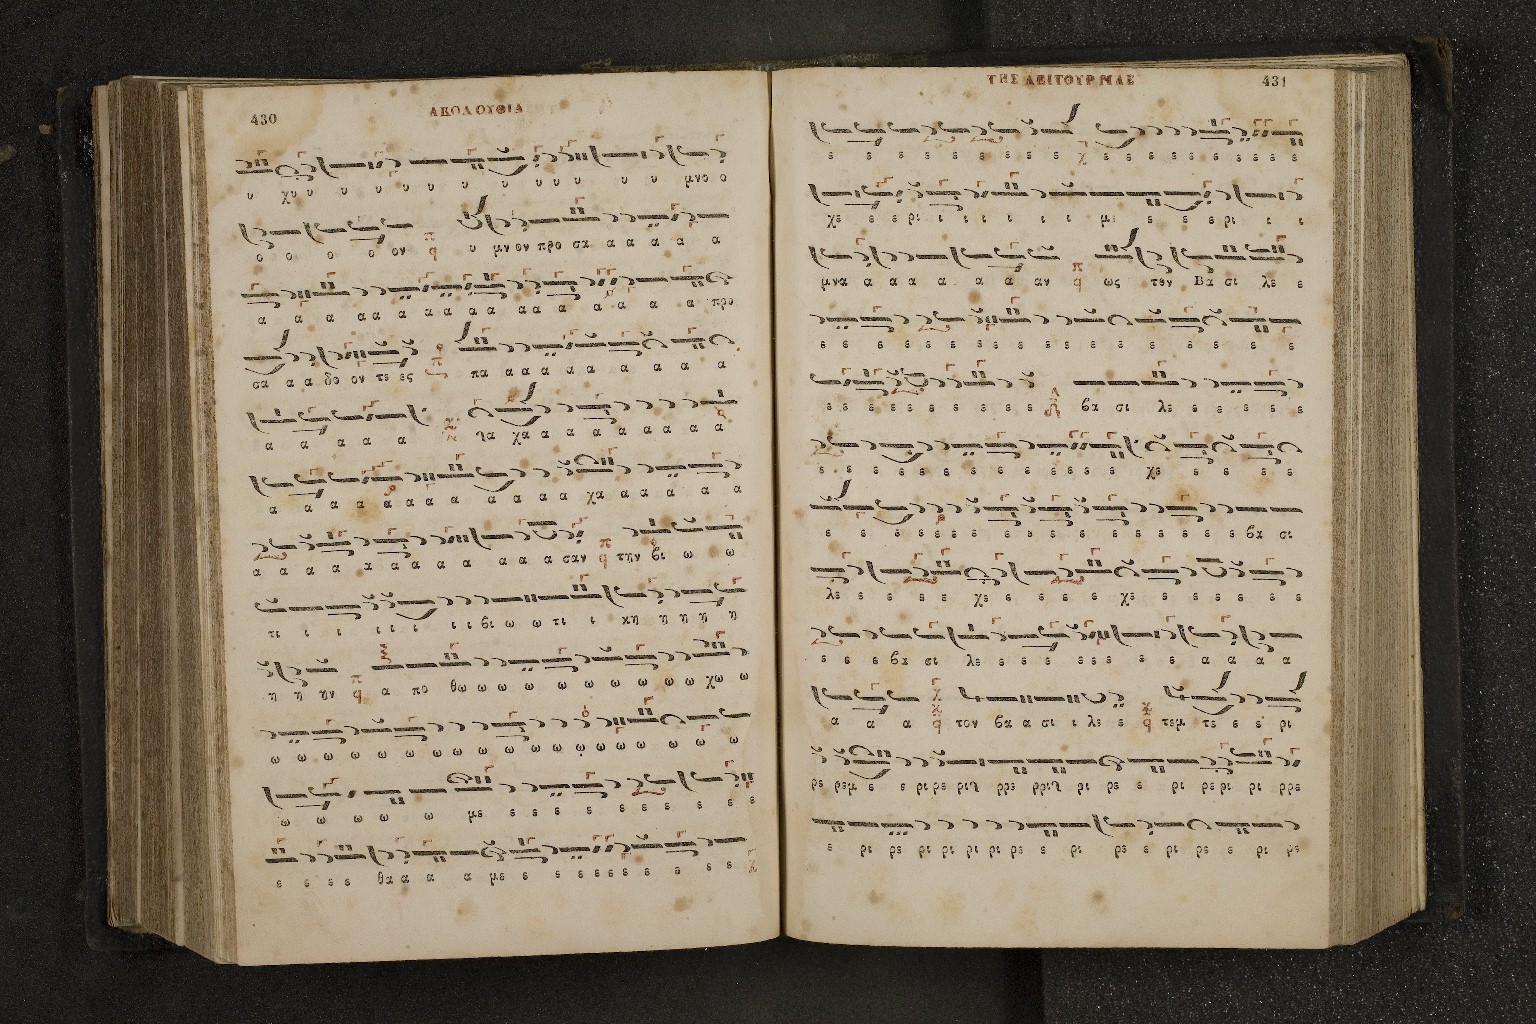 430
ΑΚΟΛΟΥΘΙΑ
υ χυ υ υ υ υ υ υ υ υ υ υ υ υ μνο ο
ο ο ο ο ον υ μνον προ σα α α α α α
α α α α α α α α α α α α α α α α προ
σα α α δο ον τε ες πα α α α α α α α α
α α α α α λα χα α α α α α α α α
α α α α α α α α α α α χα α α α α α
α α α α α α α α α α α α σαν την βι ω ω
τι ι ι ι ι ι ι ι βι ω ω τι ι κη η η η η
η η ην α πο θω ω ω ω ω ω ω ω ω ω χω ω
ω ω ω ω ω ω ω ω ω ω ω ω ω ω ω ω ω
ω ω ω ω ω με ε ε ε ε ε ε ε ε ε
ε ε ε ε θα α α α με ε ε ε ε ε ε ε ε ε ε ε
ΤΗΣ ΛΕΙΤΟΥΡΓΙΑΣ
431
ε ε ε ε ε ε ε ε ε ε ε ε ε ε ε ε ε ε ε
χε ε ε ρι ι ι ι ι ι ι με ε ε ε ρι ι ι
μνα α α α α α α αν ως τον Βα σι λε ε
ε ε ε ε ε ε ε ε ε ε ε ε ε ε ε ε
ε ε ε ε ε ε ε ε ε ε ε βα σι λε ε ε ε ε ε
ε ε ε ε ε ε ε ε ε ε ε ε ε χε ε ε ε ε
ε ε ε ε ε ε ε ε ε ε ε ε ε ε ε βα σι
λε ε ε ε ε χε ε ε ε ε ε χε ε ε ε ε ε ε
ε ε ε βα σι λε ε ε ε ε ε ε ε ε α α α α
α α α τον βα α σι ι λε ε τεμ τε ε ε ρι
ρε ρεμ ε ε ρι ρε ριζ ρρε ρριζ ρι ρε ε ρι ρε ρι ρι ρρε
ε ρι ρε ρι ρι ρι ρι ρε ε ρι ρε ε ρι ρε ε ρι ρε